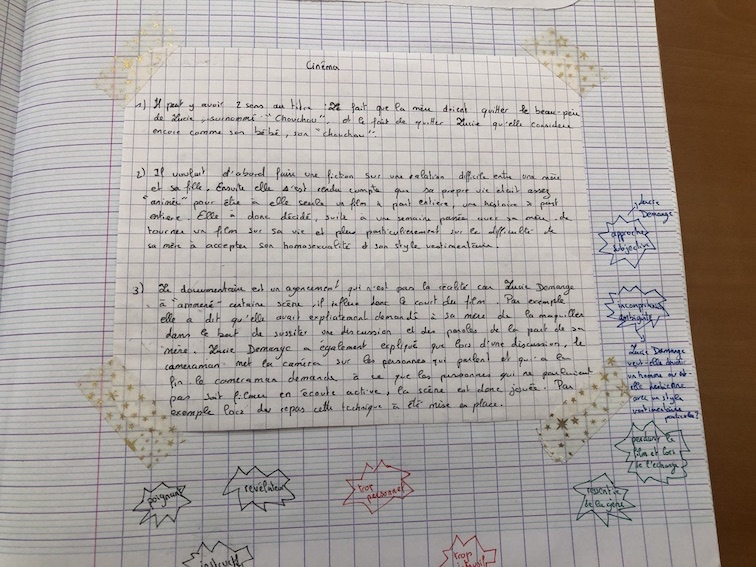 Cinéma
1) Il peut y avoir 2 sens au titre : Le fait que la mère doient quitter le beau-père
de Lucie, surnommé "Chouchou", et le fait de quitter Lucie qu'elle considère
encore comme son bébé, son "chouchou".
2) Il voulait d'abord faire une fiction sur une relation difficile entre une mère
et sa fille. Ensuite elle s'est rendu compte que sa propre vie était assez
"animée" pour être à elle seule un film à part entière, une histoire à part
entière. Elle à donc décidé, suite à une semaine passée avec sa mère de
tourner un film sur sa vie et plus particulièrement sur la difficulté de
sa mère à accepter son homosexualité et son style vestimentaire.
3) Le documentaire est un agencement qui n'est pas la réalité car Lucie Demange
à "ammené" certaine scène, il influe donc le court du film. Par exemple
elle à dit qu'elle avait expliatement demandé à sa mère de la maquiller
dans le but de sussiter une discussion et des paroles de la part de sa
mère. Lucie Demange à également expliqué que lors d'une discussion, le
cameraman met la caméra sur les personnes qui parlent et qu'à la
fin le cameraman demande à ce que les personnes qui ne parlaient
pas soit filmer en écoute active, la scène est donc jouée. Par
exemple lors des repas cette technique à été mise en place.
Lucie
Demange
approche
subjective
ambiguïté
Lucie Demange
veut-elle devenir
un homme ou
elle
avec un style
vestimentaire
particulier?
pendant le
film et lors
de l'échange
poignant
révélateur
trop
personnel
ressentir
de la gêne
instructif
trop